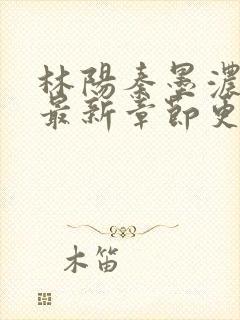 林陽秦墨濃
最新章節更
木笛